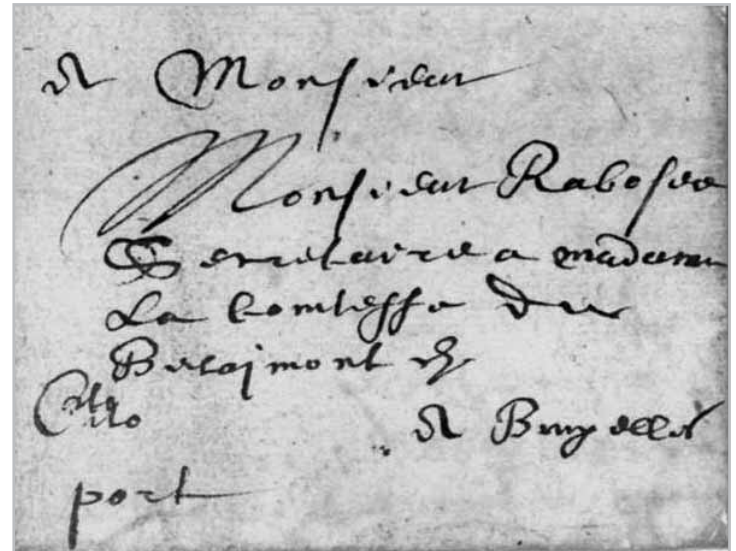 A Monsieur
Monsieur Rabosee
Secretaire a madame
La Comtesse de
Berlaimont &
Cito
Cito
A Bruxelles
port